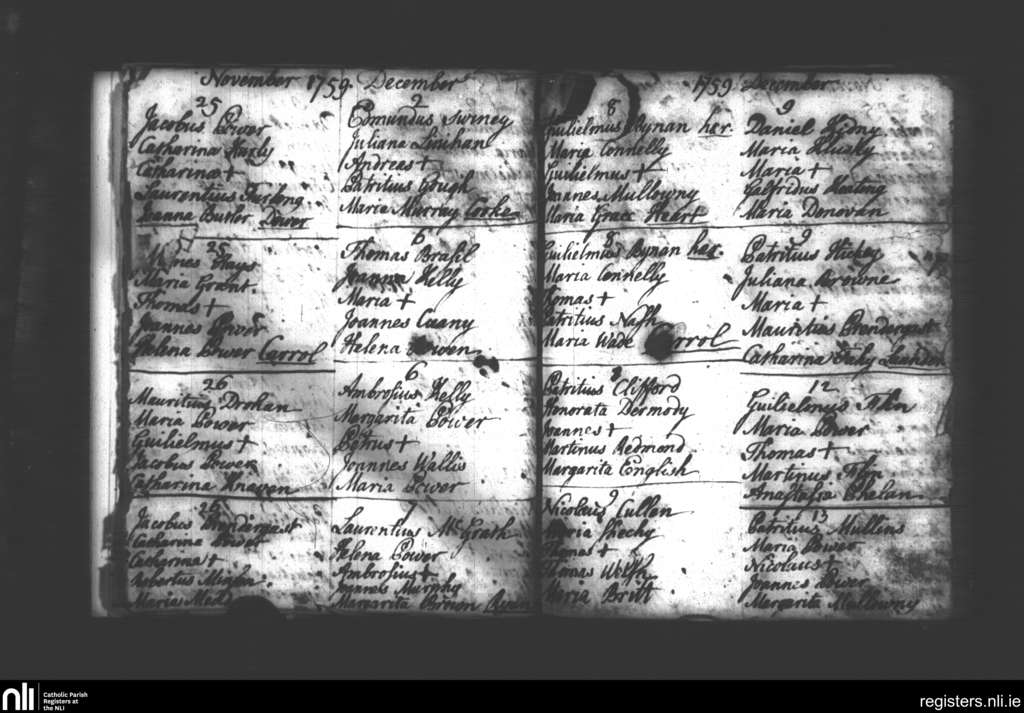 November 1759. December
25
Jacobus Power
Catharina
Catharina +
Laurentius Furlong
Joanna Butler Power
25
Hays
Maria Grant.
Thomas +
Joannes Power
Helena Power Carrol
26
Mauritius Drohan
Maria Power
Guilielmus +
Jacobus Power
Catharina
26
Jacobus Prendergast
Catharina
Catharina +
Robertus
Maria
2
Edmundus Swiney
Juliana Linihan
Andreas +
Patritius Gough
Maria Murray Cooke
6
Thomas Brasil
Joanna Kelly
Maria +
Joannes Cuany
Helena Bowen
6
Ambrosius Kelly
Margarita Power
Petrus +
Joannes Wallis
Maria Power
7
Laurentius McGrath
Helena Power
Ambrosius +
Joannes Murphy
Margarita Brown
1759 December
8
Guilielmus Rynan her.
Maria Connelly
Guilielmus +
Joannes Mullowny
Maria Grace Heart
8
Guilielmus Rynan her.
Maria Connelly
Thomas +
Patritius Nash
Maria Wade
Patritius Clifford
Honorata Dermody
Joannes +
Martinus Redmond
Margarita English
9
Nicolaus Cullen
Maria Sheehy
Thomas +
Thomas Welsh
Maria Britt
9
Daniel Kidny
Maria
Maria +
Galfridus Keating
Maria Donovan
9
Patritius Hickey
Juliana Browne
Maria +
Mauritius Prendergast
Catharina
12
Guilielmus Flin
Maria Power
Thomas +
Martinus Flin
Anastasia Phelan
13
Patritius Mullins
Maria Power
Nicolaus +
Joannes Power
Margarita Mullowny
nli
Catholic Parish
Registers at
the NLI
registers.nli.ie